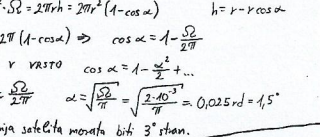 ·Ω = 2πrh = 2πr²(1-cosα)   h = r - r cosα
2π(1-cosα) ⇒ cosα = 1 - Ω/2π
V VRSTO   cosα = 1 - α²/2 + ...
= Ω/2π   α = √(Ω/π) = √(2·10⁻³/π) = 0,025rd = 1,5°
satelita morata biti 3° stran.